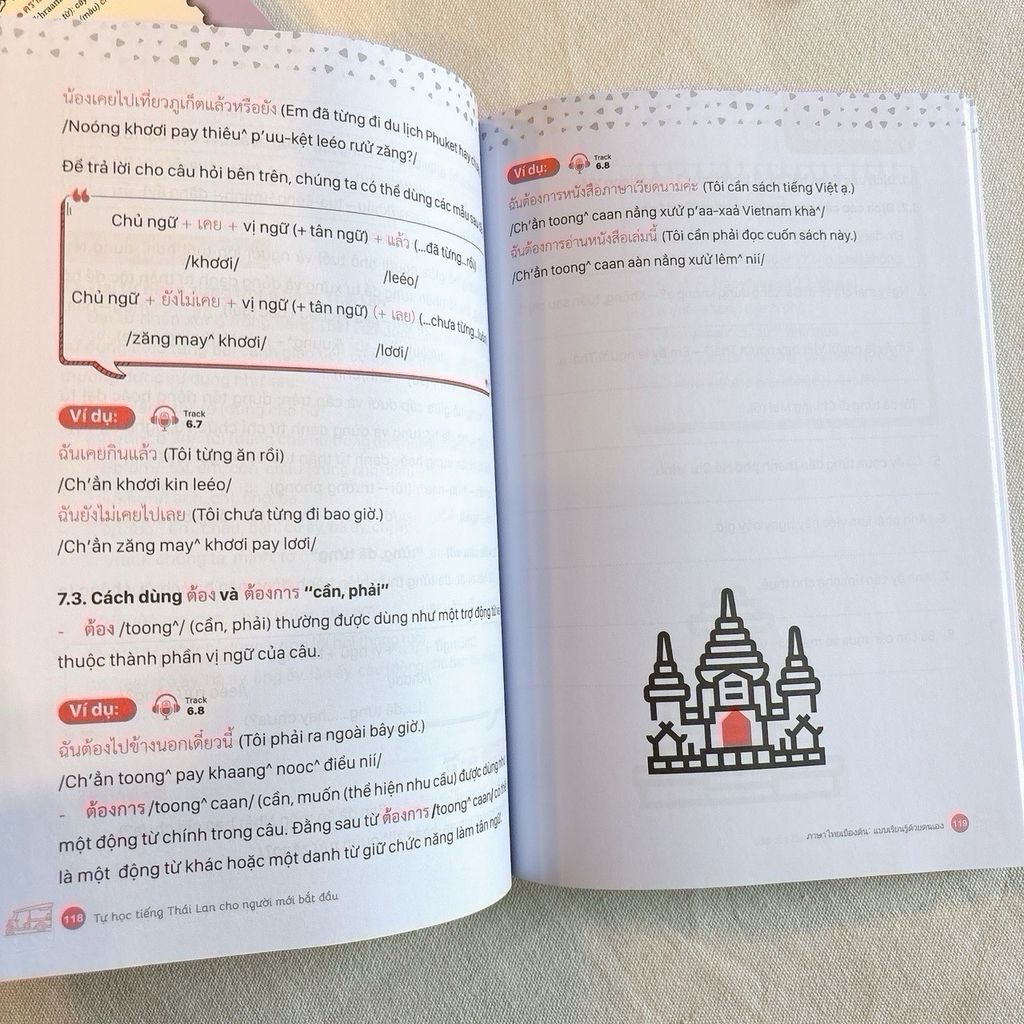 น้องเคยไปเที่ยวภูเก็ตแล้วหรือยัง (Em đã từng đi du lịch Phuket hay
/Noóng khơơi pay thiêu^ p'uu-kệt leéo rưử zăng?/
Để trả lời cho câu hỏi bên trên, chúng ta có thể dùng các mẫu sau
Chủ ngữ + เคย + vị ngữ (+ tân ngữ) + แล้ว (...đã từng...rồi)
/khơơi/ /leéo/
Chủ ngữ + ยังไม่เคย + vị ngữ (+ tân ngữ) (+ เลย) (...chưa từng...
/zăng may^ khơơi/ /lơơi/
Ví dụ: Track 6.7
ฉันเคยกินแล้ว (Tôi từng ăn rồi)
/Ch'ằn khơơi kin leéo/
ฉันยังไม่เคยไปเลย (Tôi chưa từng đi bao giờ.)
/Ch'ằn zăng may^ khơơi pay lơơi/
7.3. Cách dùng ต้อง và ต้องการ "cần, phải"
- ต้อง /toong^/ (cần, phải) thường được dùng như một trợ động từ và
thuộc thành phần vị ngữ của câu.
Ví dụ: Track 6.8
ฉันต้องไปข้างนอกเดี๋ยวนี้ (Tôi phải ra ngoài bây giờ.)
/Ch'ằn toong^ pay khaang^ nooc^ điều nií/
- ต้องการ /toong^ caan/ (cần, muốn (thể hiện nhu cầu) được dùng như
một động từ chính trong câu. Đằng sau từ ต้องการ /toong^ caan/ có thể
là một động từ khác hoặc một danh từ giữ chức năng làm tân ngữ.
118 Tự học tiếng Thái Lan cho người mới bắt đầu
Ví dụ: Track 6.8
ฉันต้องการหนังสือภาษาเวียดนามค่ะ (Tôi cần sách tiếng Việt ạ.)
/Ch'ằn toong^ caan nằng xưử p'aa-xaả Vietnam khà^/
ฉันต้องการอ่านหนังสือเล่มนี้ (Tôi cần phải đọc cuốn sách này.)
/Ch'ằn toong^ caan aàn nằng xưử lêm^ nií/
ภาษาไทยเบื้องต้น: แบบเรียนรู้ด้วยตนเอง 119